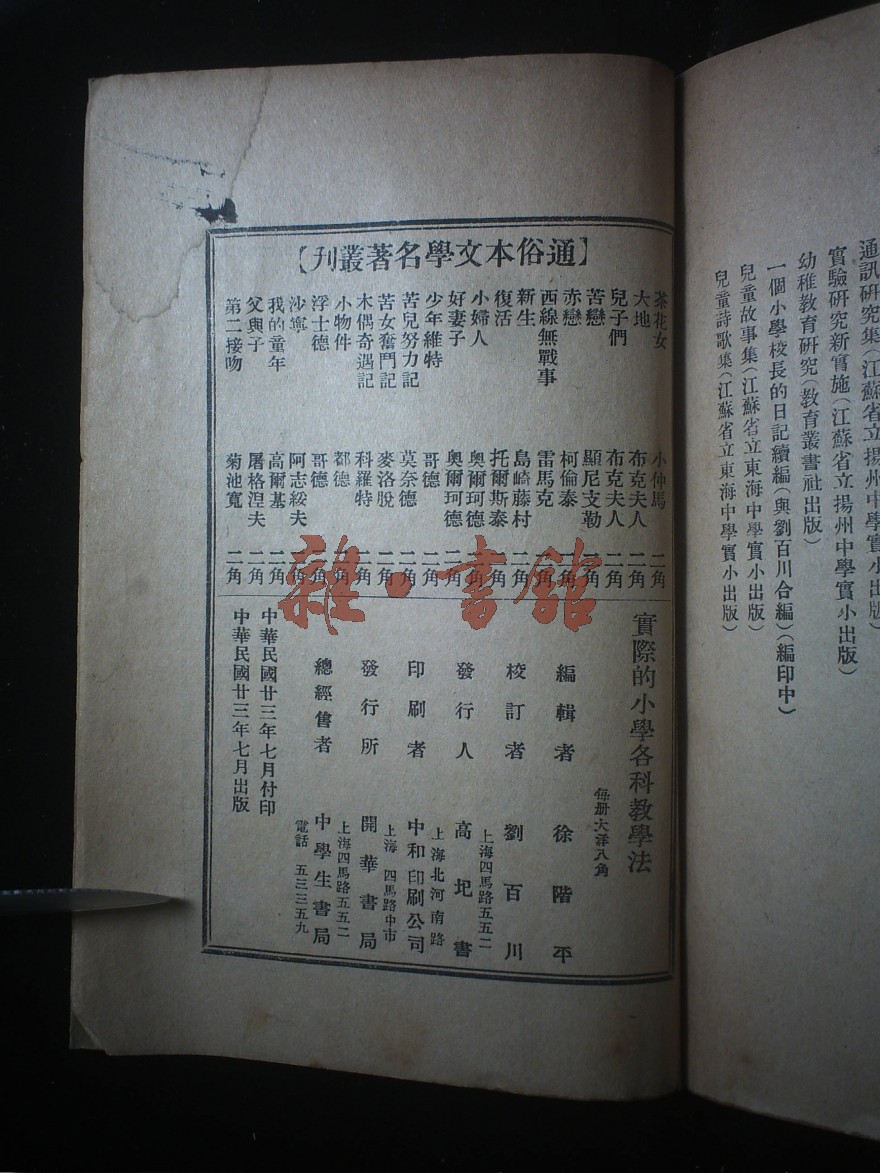 通訊研究集(江蘇省立揚州中學實小出版)
實驗研究新實施(江蘇省立揚州中學實小出版)
幼稚教育研究(教育叢書社出版)
一個小學校長的日記續編(與劉百川合編)(編印中)
兒童故事集(江蘇省立東海中學實小出版)
兒童詩歌集(江蘇省立東海中學實小出版)
【通俗本文學名著叢刊】
茶花女 小仲馬 二角
大地 布克夫人 二角
兒子們 布克夫人 二角
苦戀 顯尼支勒 二角
赤戀 柯倫泰 二角
西線無戰事 雷馬克 二角
新生 島崎藤村 二角
復活 托爾斯泰 二角
小婦人 奧爾珂德 二角
好妻子 奧爾珂德 二角
少年維特 哥德 二角
苦兒努力記 莫奈德 二角
苦女奮鬥記 麥洛脫 二角
木偶奇遇記 科羅特 二角
小物件 都德 二角
浮士德 哥德 二角
沙寧 阿志綏夫 二角
我的童年 高爾基 二角
父與子 屠格涅夫 二角
第二接吻 菊池寬 二角
實際的小學各科教學法
每册大洋八角
編輯者 徐階平
校訂者 劉百川
上海四馬路五五二
發行人 高圯書
上海北河南路
印刷者 中和印刷公司
上海 四馬路中市
發行所 開華書局
上海四馬路五五二
總經售者 中學生書局
電話 五三三五九
中華民國廿三年七月付印
中華民國廿三年七月出版
雜·書館